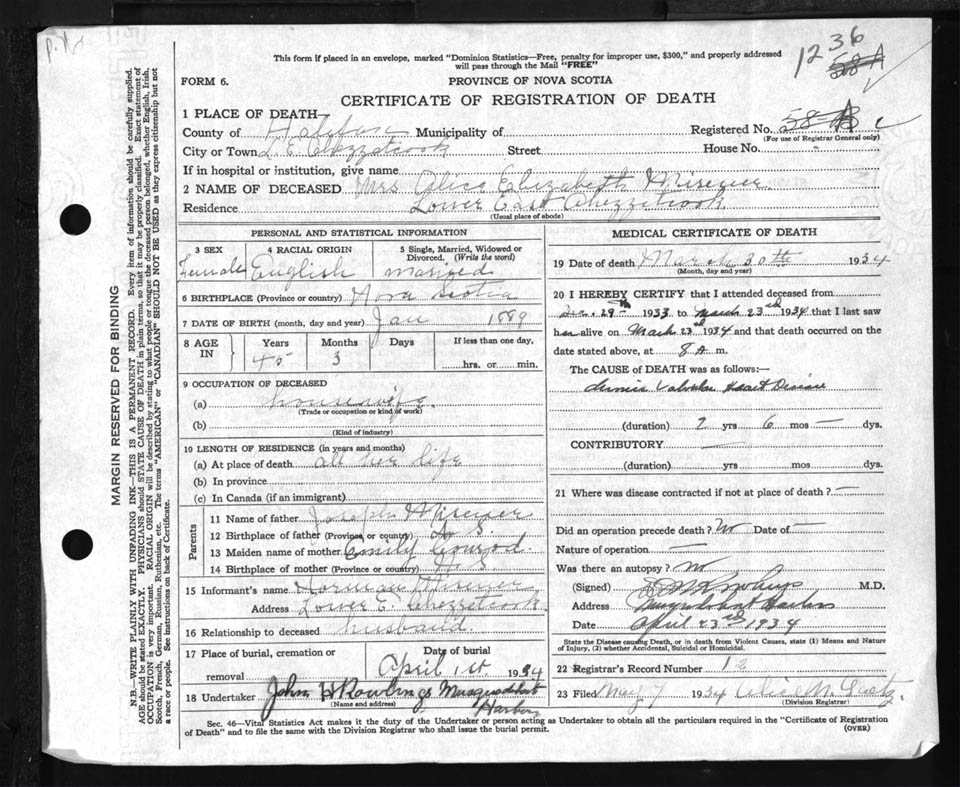 This form if placed in an envelope, marked "Dominion Statistics—Free, penalty for improper use, $300," and properly addressed
will pass through the Mail "FREE"
1236
58 A
FORM 6.
PROVINCE OF NOVA SCOTIA
CERTIFICATE OF REGISTRATION OF DEATH
1 PLACE OF DEATH—
County of Halifax Municipality of Registered No. 58
(For use of Registrar General only)
City or Town L. E. Chezzetcook Street House No.
If in hospital or institution, give name
2 NAME OF DECEASED Mrs Alice Elizabeth Misener
Residence Lower East Chezzetcook
(Usual place of abode)
PERSONAL AND STATISTICAL INFORMATION
3 SEX 4 RACIAL ORIGIN 5 Single, Married, Widowed or Divorced. (Write the word)
Female English married
6 BIRTHPLACE (Province or country) Nova Scotia
7 DATE OF BIRTH (month, day and year) Jan 1889
8 AGE IN Years Months Days If less than one day.
45 3 hrs. or min.
9 OCCUPATION OF DECEASED
(a) housewife
(Trade or occupation or kind of work)
(b)
(Kind of industry)
10 LENGTH OF RESIDENCE (in years and months)
(a) At place of death all her life
(b) In province
(c) In Canada (if an immigrant)
Parents
11 Name of father Joseph Misener
12 Birthplace of father (Province or country) N. S
13 Maiden name of mother Emily Conrod
14 Birthplace of mother (Province or country) N. S
15 Informant's name Norman Misener
Address Lower E. Chezzetcook
16 Relationship to deceased husband
17 Place of burial, cremation or removal Date of burial
April 1st 1934
18 Undertaker John H Rowlings Musquodoboit Harbor
(Name and address)
MEDICAL CERTIFICATE OF DEATH
19 Date of death March 30th 1934
(Month, day and year)
20 I HEREBY CERTIFY that I attended deceased from
Dec. 29th 1933 to March 23rd 1934 that I last saw
her alive on March 23rd 1934 and that death occurred on the
date stated above, at 8 A. m.
The CAUSE OF DEATH was as follows:—
Chronic Valvular Heart Disease
(duration) 2 yrs 6 mos — dys.
CONTRIBUTORY —
(duration) yrs mos dys.
21 Where was disease contracted if not at place of death? —
Did an operation precede death? No Date of —
Nature of operation —
Was there an autopsy? No
(Signed) Rowlings M.D.
Address Musquodoboit Harbor
Date April 23rd 1934
State the Disease causing Death, or in death from Violent Causes, state (1) Means and Nature
of Injury, (2) whether Accidental, Suicidal or Homicidal.
22 Registrar's Record Number 12
23 Filed May 7 1934 Alice M.
(Division Registrar)
Sec. 46—Vital Statistics Act makes it the duty of the Undertaker or person acting as Undertaker to obtain all the particulars required in the "Certificate of Registration
of Death" and to file the same with the Division Registrar who shall issue the burial permit.
(OVER)
MARGIN RESERVED FOR BINDING
N.B.—WRITE PLAINLY WITH UNFADING INK—THIS IS A PERMANENT RECORD. Every item of information should be carefully supplied.
AGE should be stated EXACTLY. PHYSICIANS should STATE CAUSE OF DEATH in plain terms, so that it may be properly classified. Exact statement of
OCCUPATION is very important. RACIAL ORIGIN will be described by stating to what people or tongue the deceased person belonged, whether English, Irish,
Scotch, French, German, Russian, Ruthenian, etc. The terms "AMERICAN" or "CANADIAN" SHOULD NOT BE USED as they express citizenship but not
a race or people. See instructions on back of Certificate.